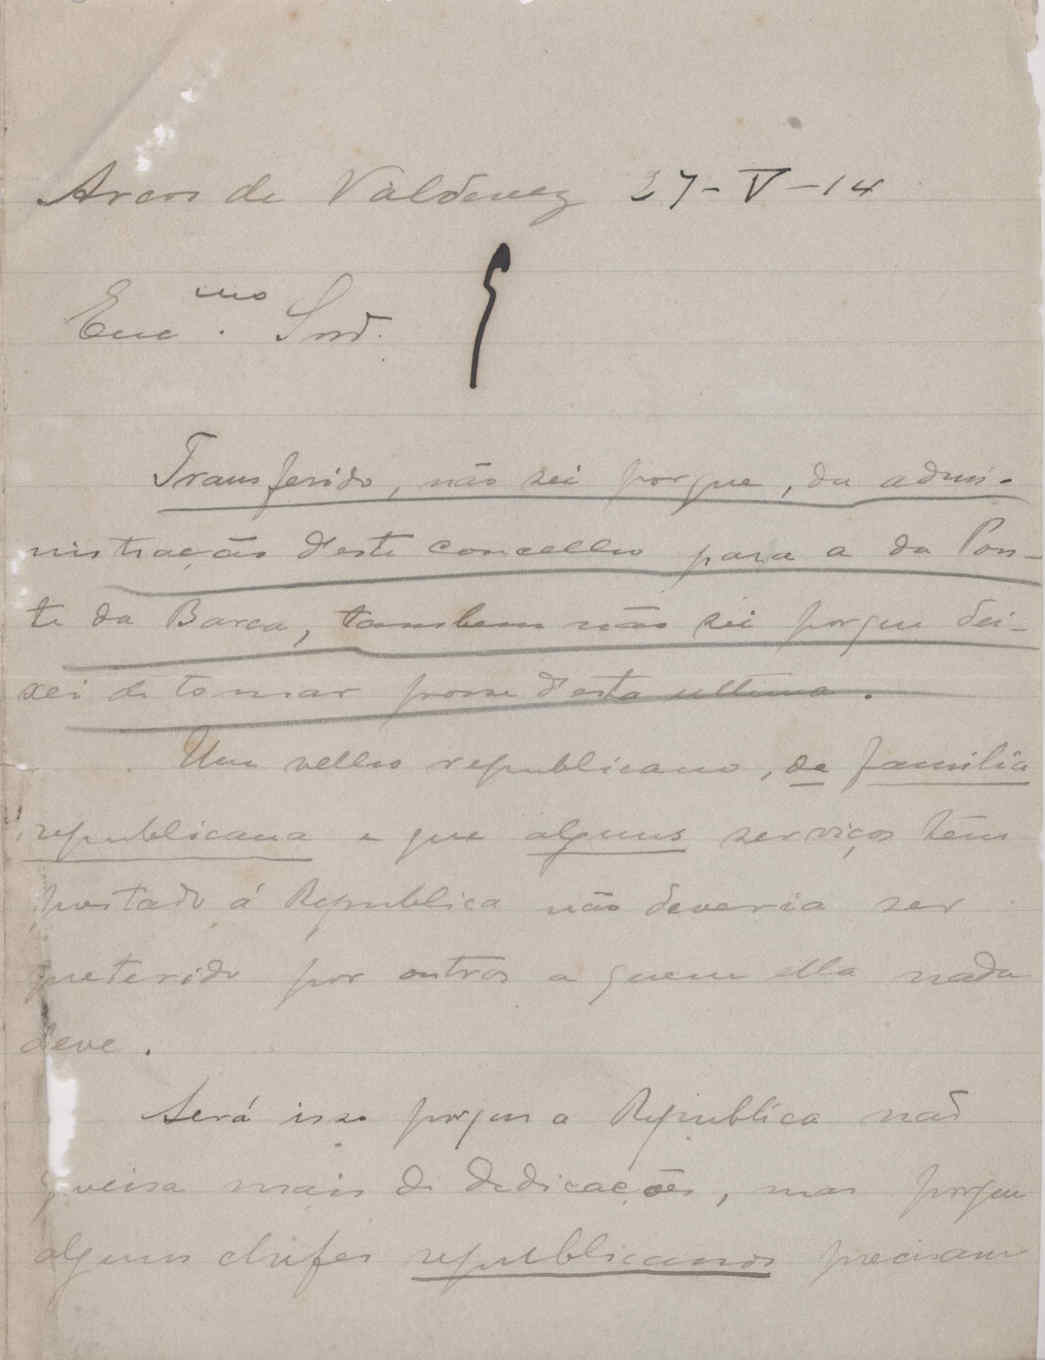 Arcos de Valdevez 27-V-14
Exc.mo Snr.
Transferido, não sei porque, da admi-
nistração d'este concelho para a da Pon-
te da Barca, tambem não sei porque dei-
xei de tomar posse d'esta ultima.
Um velho republicano, de familia
republicana e que alguns serviços tem
prestado á Republica não deveria ser
preterido por outros a quem ella nada
deve.
Será isso porque a Republica não
queira mais de dedicações, mas porque
alguns chefes republicanos precisam